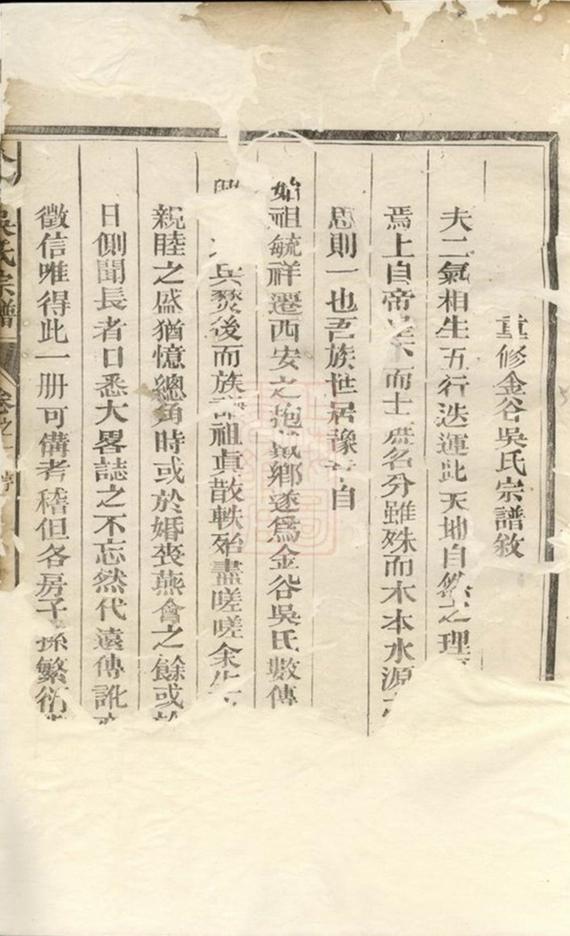 重修金谷吳氏宗譜敘
夫二氣相生五行迭運此天地自然之理
焉上自帝 下而士庶名分雖殊而木本水源
思則一也吾族世居豫章自
始祖毓祥遷西安之 鄉遂爲金谷吳氏數傳
兵燹後而族 祖眞散軼殆盡嗟嗟余生
親睦之盛猶憶總角時或於婚喪燕會之餘或於
日側聞長者口悉大畧誌之不忘然代遠傳訛
徵信唯得此一册可備考稽但各房子孫繁衍
吳氏宗譜 卷之一 序